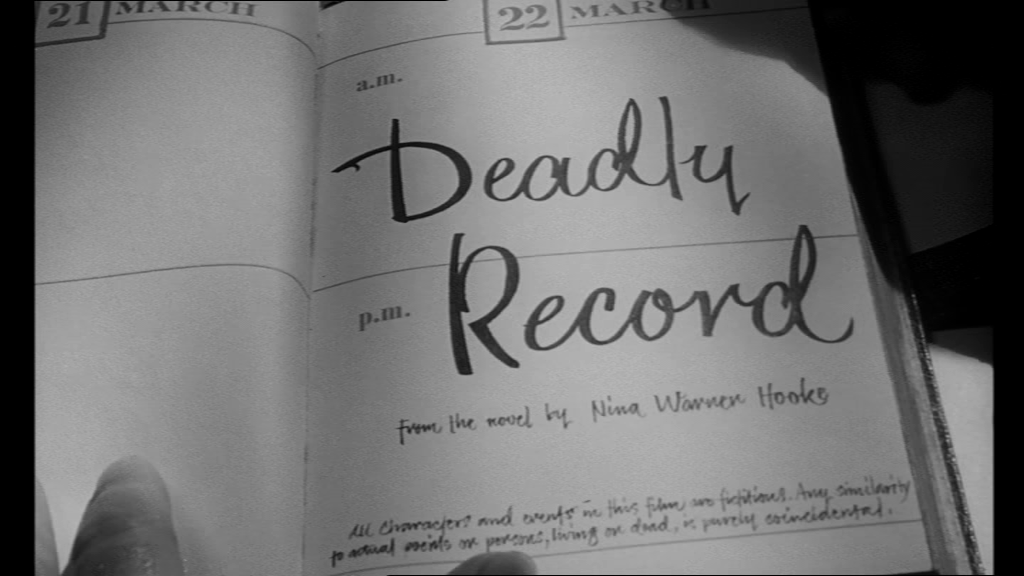 21 MARCH
22 MARCH
a.m.
Deadly
Record
p.m.
From the novel by Nina Warner Hooke
All characters and events in this film are fictitious. Any similarity
to actual events or persons, living or dead, is purely coincidental.